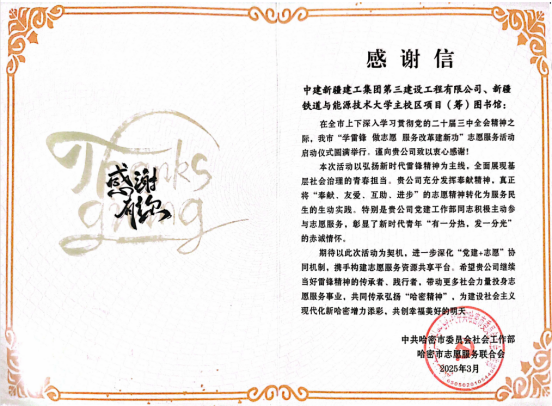 Thanks
giving
感谢
有你
感谢信
中建新疆建工集团第三建设工程有限公司、新疆
铁道与能源技术大学主校区项目（筹）图书馆：
在全市上下深入学习贯彻党的二十届三中全会精神之
际，我市“学雷锋 做志愿 服务改革建新功”志愿服务活动
启动仪式圆满举行。谨向贵公司致以衷心感谢！
本次活动以弘扬新时代雷锋精神为主线，全面展现基
层社会治理的青春担当。贵公司充分发挥奉献精神，真正
将“奉献、友爱、互助、进步”的志愿精神转化为服务民
生的生动实践。特别是贵公司党建工作部同志积极主动参
与志愿服务，彰显了新时代青年“有一分热，发一分光”
的赤诚情怀。
期待以此次活动为契机，进一步深化“党建+志愿”协
同机制，携手构建志愿服务资源共享平台。希望贵公司继续
当好雷锋精神的传承者、践行者，带动更多社会力量投身志
愿服务事业，共同传承弘扬“哈密精神”，为建设社会主义
现代化新哈密增力添彩，共创幸福美好的明天
中共哈密市委员会社会工作部
哈密市志愿服务联合会
2025年3月